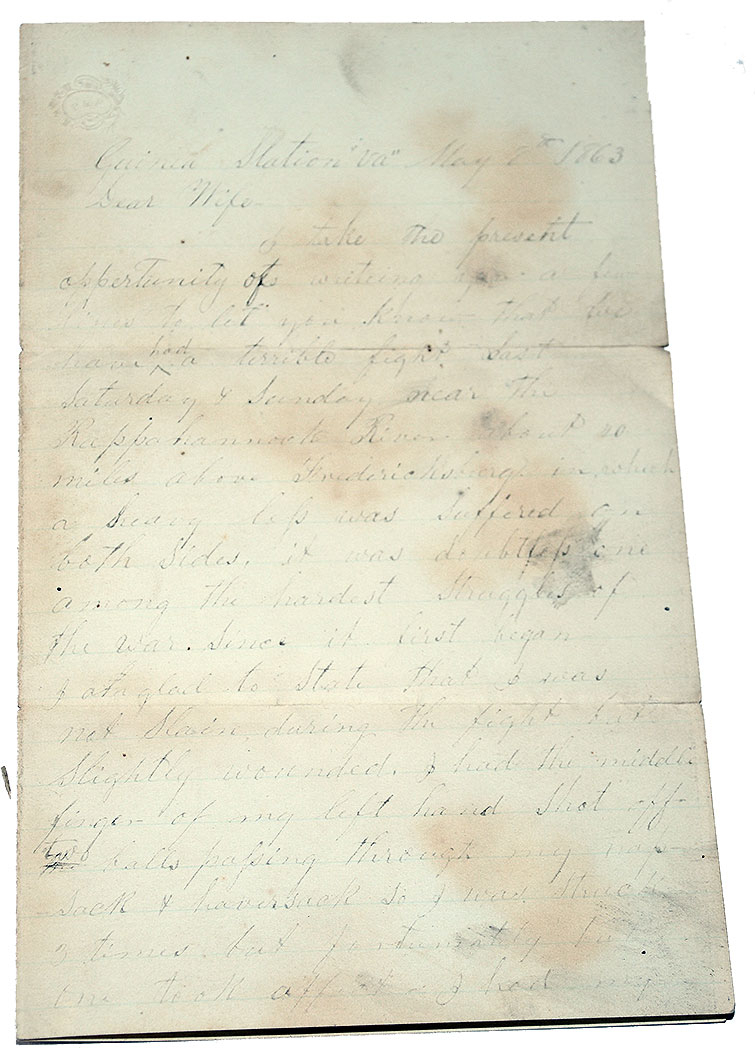 Guinea Station "Va" May 8th 1863
Dear Wife
I take the present
oppertunity of writing you a few
lines to let you know that we
have had a terrible fight Last
Saturday & Sunday near the
Rappahannock River about 20
miles above Fredericksburg in which
a heavy loss was suffered on
both Sides. it was doubtless one
among the hardest Struggles of
the war. Since it first began
I am glad to State that I was
not Slain during the fight but
Slightly wounded. I had the middle
finger of my left hand Shot off
two balls passing through my nap
Sack & haversack So I was Struck
3 times but fortunately but
one took affect I had my